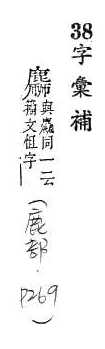 38字彙補
與同一云
籀文字
(鹿部.P269)